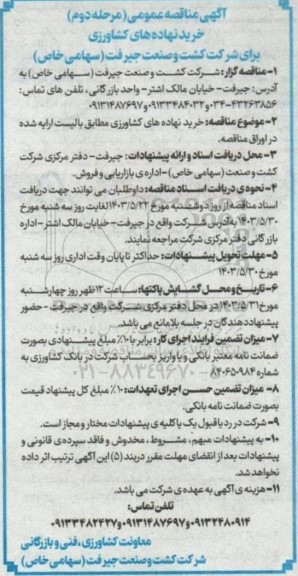 آگهی مناقصه عمومی (مرحله دوم)
خرید نهاده های کشاورزی
برای شرکت کشت و صنعت جیرفت (سهامی خاص)
۱- مناقصه گزار: شرکت کشت و صنعت جیرفت (سهامی خاص) به
آدرس: جیرفت- خیابان مالک اشتر- واحد بازرگانی، تلفن های تماس:
۰۳۴-۴۳۲۶۳۸۵۶ و ۰۹۱۳۳۴۸۴۰۳۲ و ۰۹۱۳۱۴۸۷۶۹۷
۲- موضوع مناقصه: خرید نهاده های کشاورزی مطابق بالیست ارایه شده
در اوراق مناقصه.
۳- محل دریافت اسناد و ارائه پیشنهادات: جیرفت- دفتر مرکزی شرکت
کشت و صنعت (سهامی خاص)- اداره ی بازاریابی و فروش.
۴- نحوه ی دریافت اسناد مناقصه: داوطلبان می توانند جهت دریافت
اسناد مناقصه از روز دوشنبه مورخ ۱۴۰۳/۵/۲۲ لغایت روز سه شنبه مورخ
۱۴۰۳/۵/۳۰ به آدرس شرکت واقع در جیرفت- خیابان مالک اشتر- اداره
بازرگانی دفتر مرکزی شرکت مراجعه نمایند.
۵- مهلت تحویل پیشنهادات: حداکثر تا پایان وقت اداری روز سه شنبه
مورخ ۱۴۰۳/۵/۳۰
۶- تاریخ و محل گشایش پاکتها: ساعت ۱۲ ظهر روز چهارشنبه
مورخ ۱۴۰۳/۵/۳۱ در محل دفتر مرکزی شرکت واقع در جیرفت - حضور
پیشنهاد دهندگان در جلسه بلامانع می باشد.
۷- میزان تضمین فرایند اجرای کار: برابر با ۱۰٪ مبلغ پیشنهادی بصورت
ضمانت نامه معتبر بانکی و یا واریز بحساب شرکت در بانک کشاورزی به
شماره ۸۴۰۶۵۰۹۸۴
۸- میزان تضمین حسن اجرای تعهدات: ۱۰٪ مبلغ کل پیشنهاد قیمت
بصورت ضمانت نامه بانکی.
۹- شرکت در رد یا قبول یک یا کلیه ی پیشنهادات مختار و مجاز است.
۱۰- به پیشنهادات مبهم، مشروط، مخدوش و فاقد سپرده ی قانونی و
پیشنهادات بعد از انقضای مهلت مقرر دربند (۵) این آگهی ترتیب اثر داده
نخواهد شد.
۱۱- هزینه ی آگهی به عهده ی شرکت می باشد.
تلفن تماس:
۰۹۱۳۲۴۸۰۹۱۴ و ۰۹۱۳۱۴۸۷۶۹۷ و ۰۹۱۳۳۴۸۲۴۲۷
معاونت کشاورزی، فنی و بازرگانی
شرکت کشت و صنعت جیرفت (سهامی خاص)
۰۲۱-۸۸۳۴۹۶۷۰